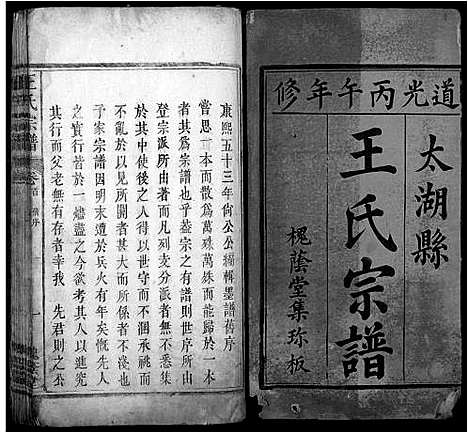 道光丙午年修
太湖縣
王氏宗譜
槐蔭堂集珎板
康熙五十三年尙公公續輯墨譜舊序
嘗思一本而散爲萬殊萬殊而能歸於一本
者其爲宗譜也乎蓋宗之有譜則世序所由
登宗派所由著而凡列支分派者無不悉集
於其中使後之人得以世守而不涸承祧而
不亂豈以見所聞者甚大而所關者甚重哉
予家宗譜因明末遭於兵火有年矣慨先人
之實行皆於一燼盡之今欲誌其人以進究
其行而父老無有存者幸我 先君則之公
王氏宗譜 卷首 舊序 一